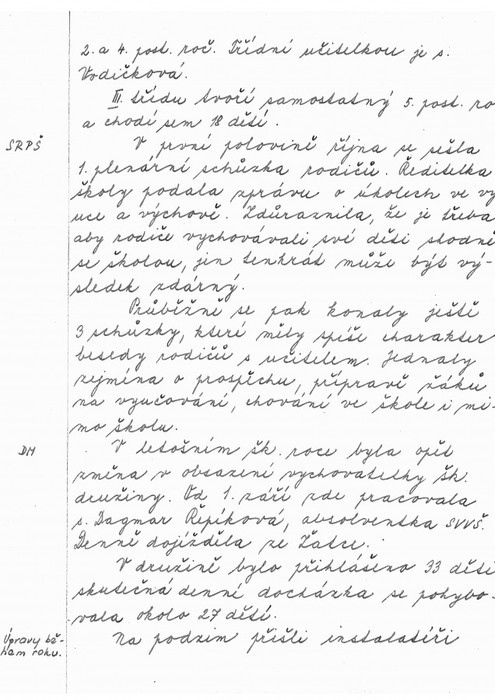 2. a 4. post. roč. Třídní učitelkou je s.
Vodičková.
III. třídu tvoří samostatný 5. post. ro
a chodí sem 18 dětí.
SRPŠ
V první polovině října se sešla
1. plenární schůzka rodičů. Ředitelka
školy podala zprávu o úkolech ve vy
uce a výchově. Zdůraznila, že je třeba
aby rodiče vychovávali své děti shodně
se školou, jen tenkrát může být vý-
sledek zdárný.
Průběžně se pak konaly ještě
3 schůzky, které měly spíše charakter
besedy rodičů s učitelem. Jednaly
zejména o prospěchu, přípravě žáků
na vyučování, chování ve škole i mi-
mo školu.
DM
V letošním šk. roce byla opět
změna v obsazení vychovatelky šk.
družiny. Od 1. září zde pracovala
s. Dagmar Řepíková, absolventka SVVŠ.
Denně dojížděla ze Žatce.
V družině bylo přihlášeno 33 dětí
skutečná denní docházka se pohybo-
vala okolo 27 dětí.
Úpravy bě-
hem roku.
Na podzim přišli instalatéři